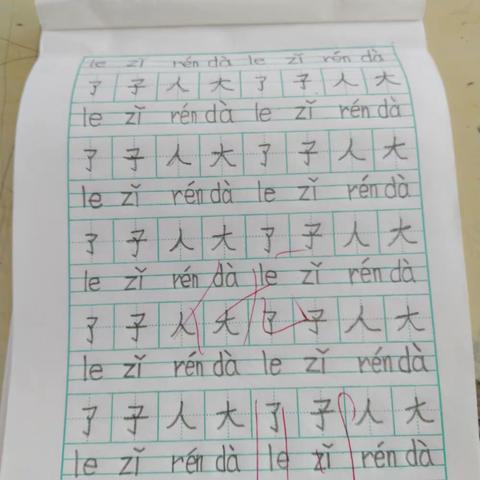 le zǐ rén dà le zǐ rén dà
了 子 人 大 了 子 人 大
le zǐ rén dà le zǐ rén dà
了 子 人 大 了 子 人 大
le zǐ rén dà le zǐ rén dà
了 子 人 大 了 子 人 大
le zǐ rén dà le zǐ rén dà
了 子 人 大 了 子 人 大
le zǐ rén dà le zǐ rén dà
了 子 人 大 了 子 人 大
le zǐ rén dà le zǐ rén dà